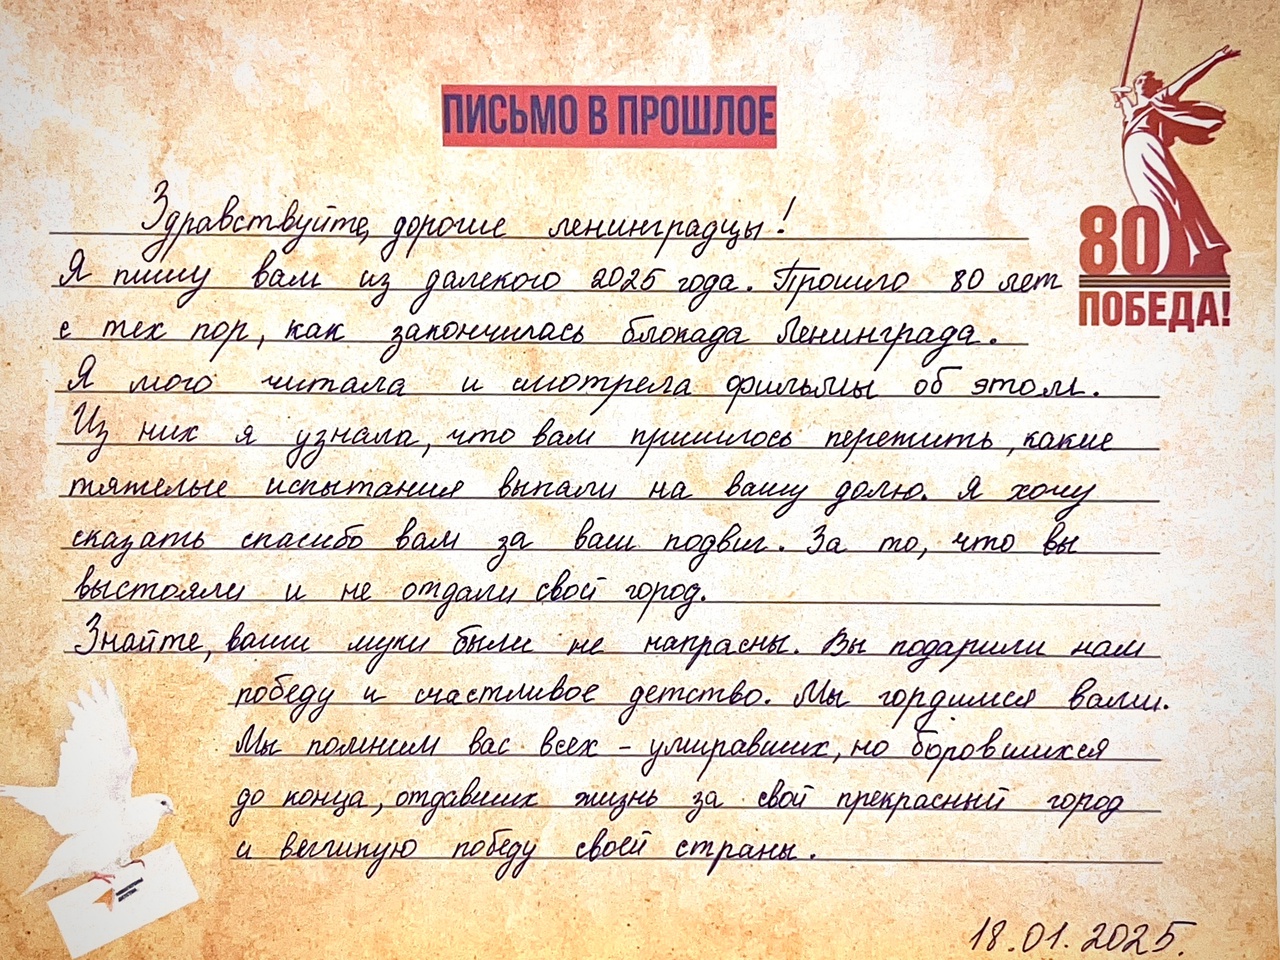 ПИСЬМО В ПРОШЛОЕ
80
ПОБЕДА!
Здравствуйте, дорогие ленинградцы!
Я пишу вам из далекого 2025 года. Прошло 80 лет
с тех пор, как закончилась блокада Ленинграда.
Я много читала и смотрела фильмы об этом.
Из них я узнала, что вам пришлось пережить, какие
тяжелые испытания выпали на вашу долю. Я хочу
сказать спасибо вам за ваш подвиг. За то, что вы
выстояли и не отдали свой город.
Знайте, ваши муки были не напрасны. Вы подарили нам
победу и счастливое детство. Мы гордимся вами.
Мы помним вас всех - умиравших, но боровшихся
до конца, отдавших жизнь за свой прекрасный город
и великую победу своей страны.
18.01.2025.